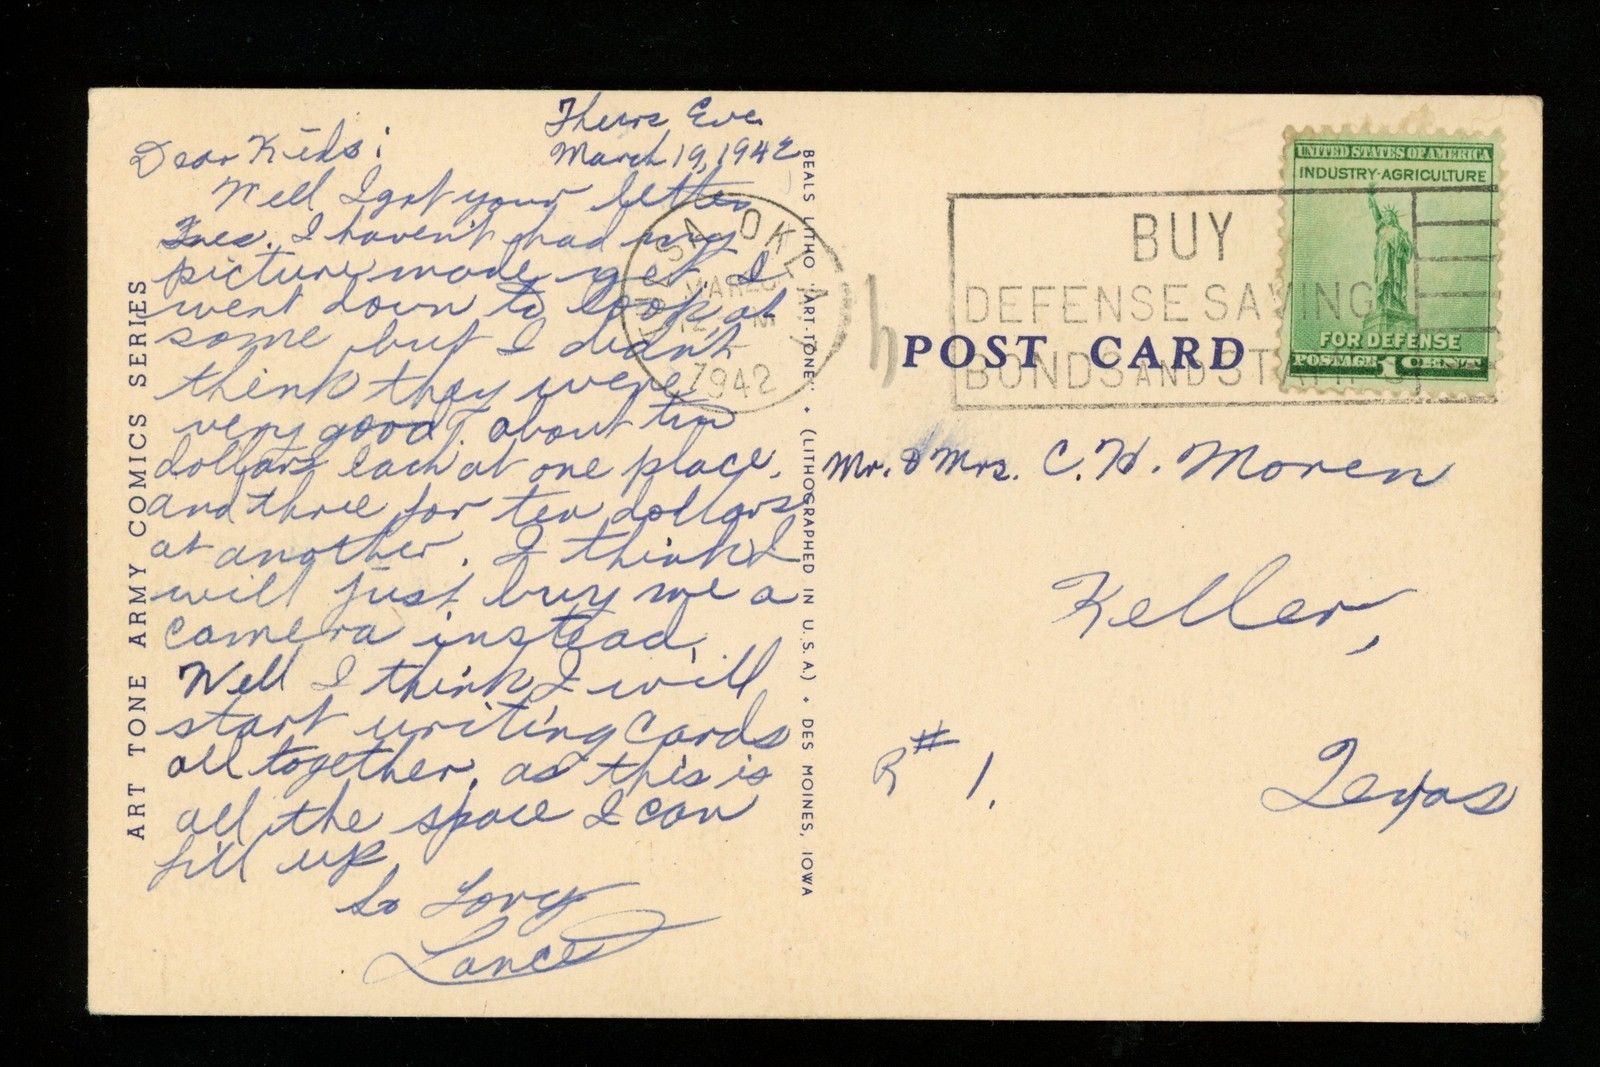 Thurs Eve.
March 19, 1942
Dear Kids:
Well I got your letter
Tues. I haven't had my
picture made yet. I
went down to look at
some but I didn't
think they were
very good. about ten
dollars each at one place.
and three for ten dollars
at another. I think I
will just buy me a
camera instead.
Well I think I will
start writing cards
all together, as this is
all the space I can
fill up.
So Long
Lance
ART TONE ARMY COMICS SERIES
BEALS LITHO "ART-TONE" • (LITHOGRAPHED IN U.S.A.) • DES MOINES, IOWA
TULSA, OKLA.
MAR 20
12 M
1942
BUY
DEFENSE SAVINGS
BONDS AND STAMPS
UNITED STATES OF AMERICA
INDUSTRY-AGRICULTURE
FOR DEFENSE
POSTAGE 1 CENT
POST CARD
Mr. & Mrs. C. H. Moren
Keller,
R # 1.
Texas